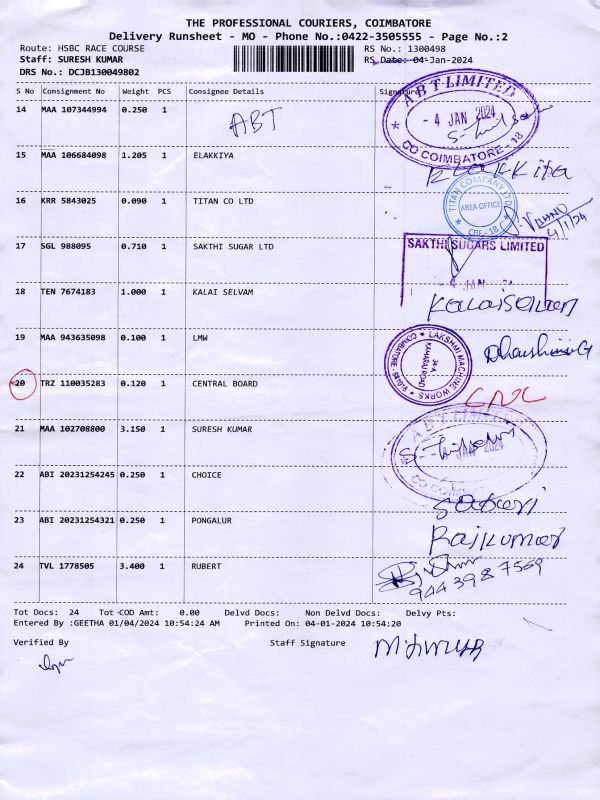 THE PROFESSIONAL COURIERS, COIMBATORE
Delivery Runsheet - MO - Phone No.:0422-3505555 - Page No.:2
Route: HSBC RACE COURSE RS No.: 1300498
Staff: SURESH KUMAR RS Date: 04-Jan-2024
DRS No.: DCJB130049802
S No Consignment No Weight PCS Consignee Details Signature
14 MAA 107344994 0.250 1 ABT
A B T LIMITED
- 4 JAN 2024
CO COIMBATORE - 18
15 MAA 106684098 1.205 1 ELAKKIYA
16 KRR 5843025 0.090 1 TITAN CO LTD
TITAN COMPANY LTD
AREA OFFICE
CBE - 18
4/1/24
17 SGL 988095 0.710 1 SAKTHI SUGAR LTD
SAKTHI SUGARS LIMITED
4 JAN
18 TEN 7674183 1.000 1 KALAI SELVAM Kalaiselvam
19 MAA 943635098 0.100 1 LMW Dharshini G
LAKSHMI MACHINE WORKS
34-A
KAMARAJ ROAD
COIMBATORE
20 TRZ 110035283 0.120 1 CENTRAL BOARD
21 MAA 102708800 3.150 1 SURESH KUMAR
A B T LIMITED
JAN 2024
22 ABI 20231254245 0.250 1 CHOICE
23 ABI 20231254321 0.250 1 PONGALUR Rajkumar
24 TVL 1778505 3.400 1 RUBERT
944 398 7569
Tot Docs: 24 Tot COD Amt: 0.00 Delvd Docs: Non Delvd Docs: Delvy Pts:
Entered By :GEETHA 01/04/2024 10:54:24 AM Printed On: 04-01-2024 10:54:20
Verified By Staff Signature